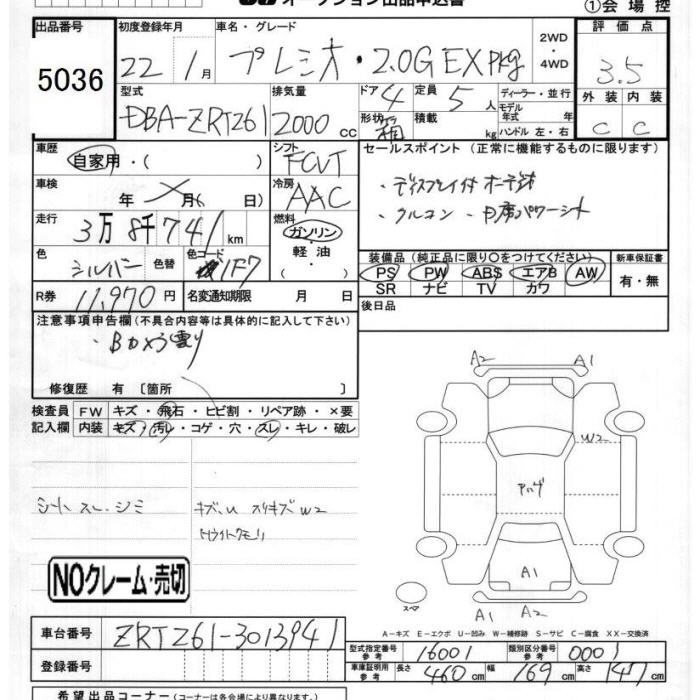 オークション出品申込書 ①会場控
出品番号 初度登録年月 車名・グレード 2WD・4WD 評価点
5036 22年1月 プレミオ・2.0G EXpkg 3.5
型式 排気量 ドア 4 定員 5人 ディーラー・並行 外装 内装
DBA-ZRT261 2000cc 形状 箱 積載 kg モデル年式 年式 ハンドル 左・右 C C
車歴 自家用・( ) シフト FCVT セールスポイント (正常に機能するものに限ります)
車検 年 月( 日) 冷房 AAC ・ディスプレイ付オーディオ
走行 3万8千741km 燃料 ガソリン・軽油・ ・クルコン
色 シルバー 色替 色コード 1F7 装備品(純正品に限り○をつけてください) 新車保証書
PS PW ABS エアB AW 有・無
SR ナビ TV カワ
R券 11,970円 名変通知期限 月 日 後日品
注意事項申告欄(不具合内容等は具体的に記入して下さい)
・Bカメラ曇り
修復歴 有 〔箇所 〕 A2 A1
検査員 FW キズ・飛石・ヒビ割・リペア跡・×要
記入欄 内装 キズ・汚レ・コゲ・穴・スレ・キレ・破レ W2
シート スレ・シミ キズ、U スリキズW2
NOクレーム・売切 A1
スペア A1 A2
A-キズ E-エクボ U-凹み W-補修跡 S-サビ C-腐食 XX-交換済
車台番号 ZRT261-3013941 型式指定番号 参考 16001 類別区分番号 参考 0001
登録番号 車庫証明用 参考 長さ 460cm 幅 169cm 高さ 147cm
希望出品コーナー(コーナーは各会場により異なります)